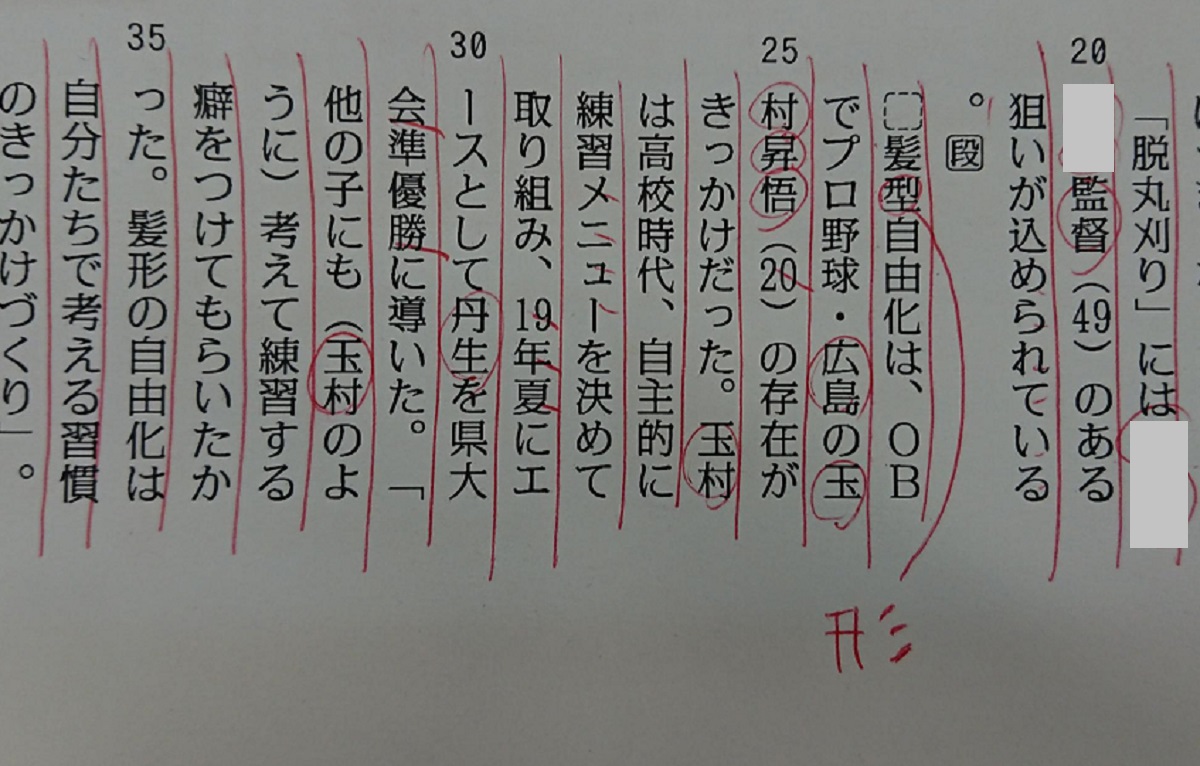 「脱丸刈り」には
20
監督(49)のある
狙いが込められている
。段
髪型自由化は、OB
でプロ野球・広島の玉
25
村昇悟(20)の存在が
きっかけだった。玉村
は高校時代、自主的に
練習メニューを決めて
取り組み、19年夏にエ
30
ースとして丹生を県大
会準優勝に導いた。「
他の子にも(玉村のよ
うに)考えて練習する
癖をつけてもらいたか
35
った。髪形の自由化は
自分たちで考える習慣
のきっかけづくり」。
形